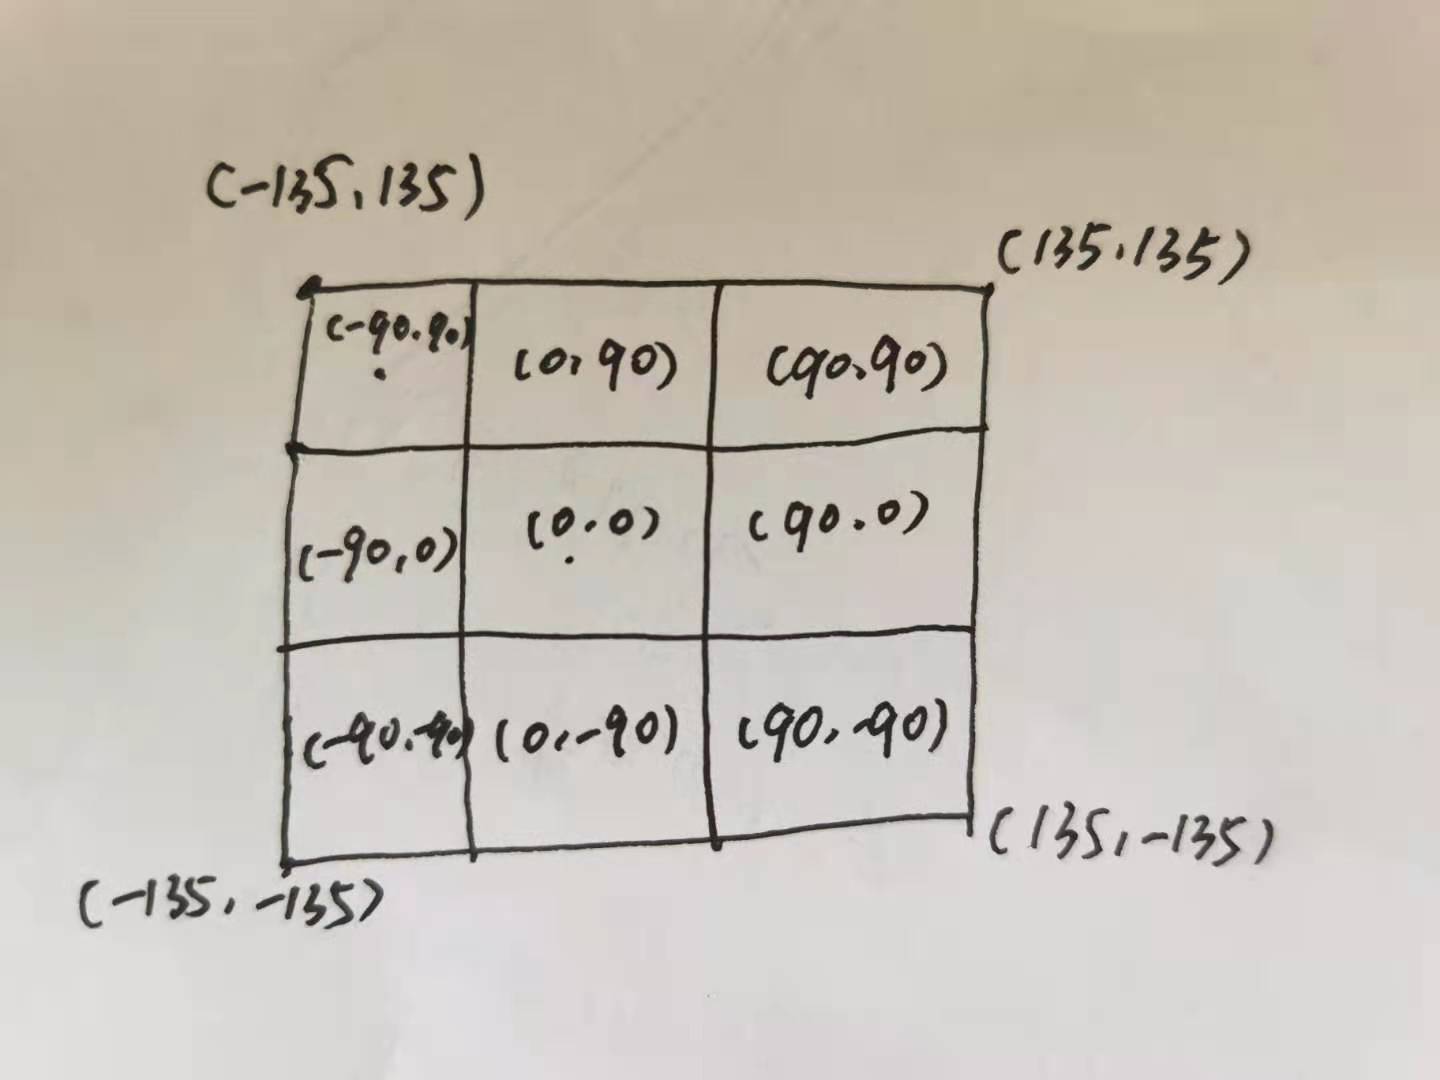 (-135, 135)
(135, 135)
(-90, 90)
(0, 90)
(90, 90)
(-90, 0)
(0, 0)
(90, 0)
(-90, -90)
(0, -90)
(90, -90)
(-135, -135)
(135, -135)